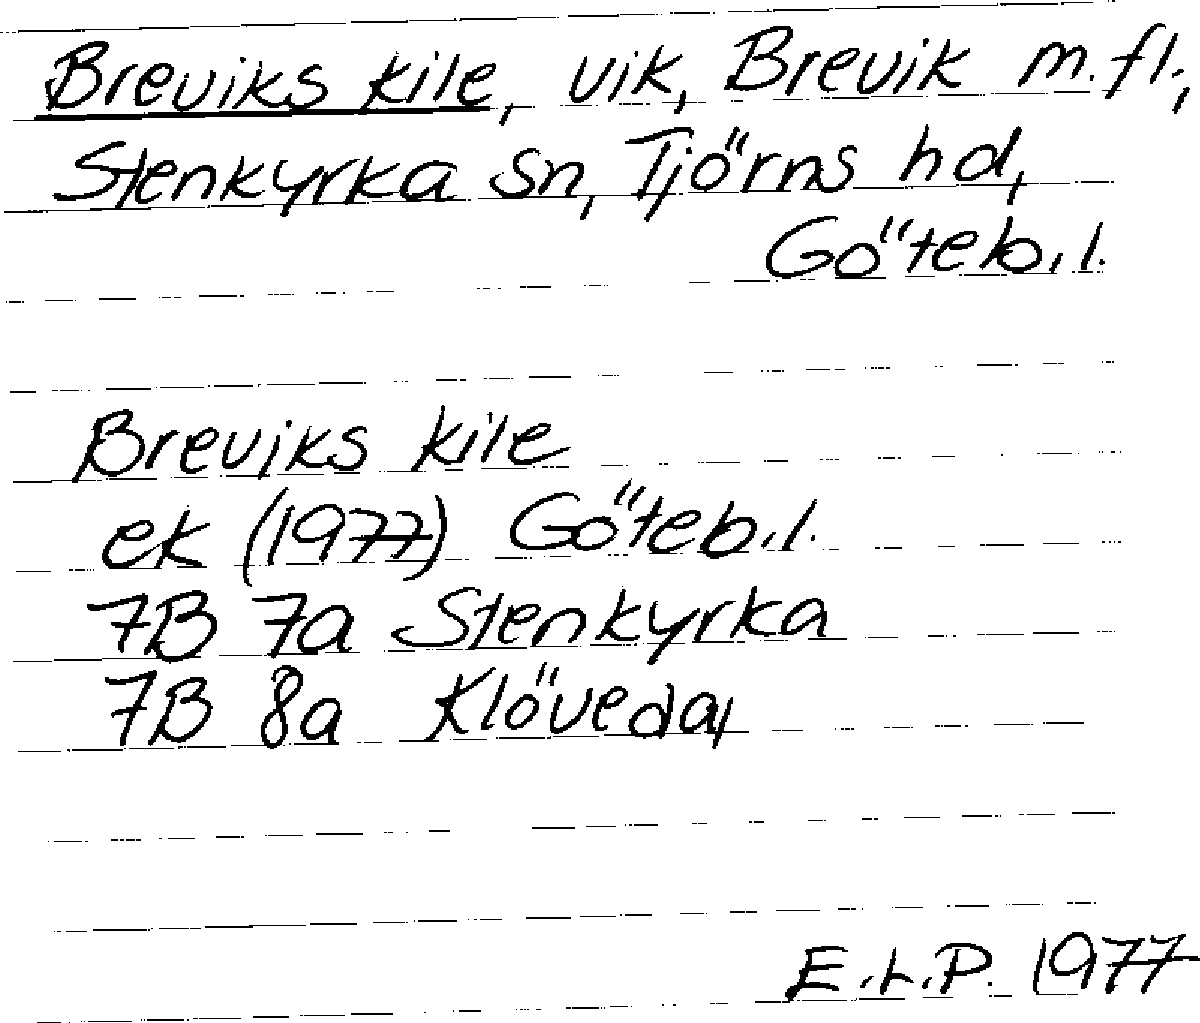 Breviks kile, vik, Brevik m.fl.,
Stenkyrka sn, Tjörns hd,
Göteb.l.
Breviks kile
ek (1977) Göteb.l.
7B 7a Stenkyrka
7B 8a Klövedal
E.L.P. 1977